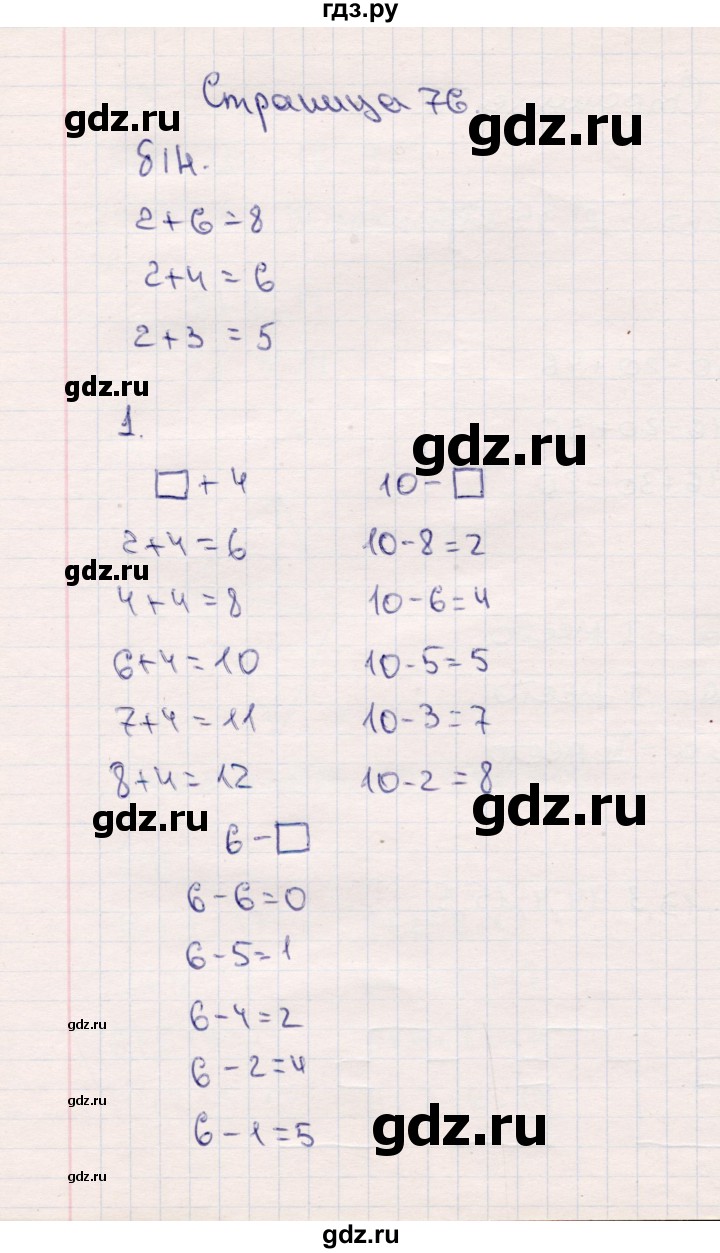 гдз.ру
Страница 76.
gdz.ru
gdz.ru
2+6=8
2+4=6
2+3=5
gdz.ru
1.
gdz.ru
□+4
10-□
2+4=6
10-8=2
gdz.ru
4+4=8
10-6=4
6+4=10
10-5=5
7+4=11
10-3=7
8+4=12
10-2=8
gdz.ru
gdz.ru
6-□
6-6=0
6-5=1
6-4=2
gdz.ru
6-2=4
gdz.ru
6-1=5
gdz.ru
gdz.ru
gdz.ru